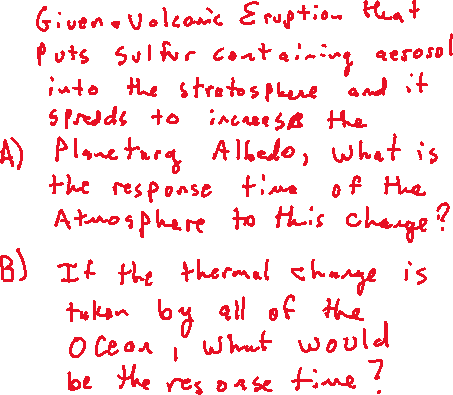 Given a Volcanic Eruption that
puts sulfur containing aerosol
into the stratosphere and it
spreads to increase the
A) Planetary Albedo, what is
the response time of the
Atmosphere to this change?
B) If the thermal change is
taken by all of the
Ocean, what would
be the resoase time?